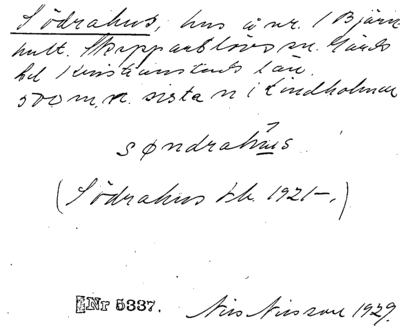 Södrahus, hus å nr. 1 Björn
hult. Skepparslövs sn. Gärds
hd Kristianstads län.
500 m. n. sista n i Lindholmen
søndrahùs
(Södrahus tk. 1921–.)
ENr 5337. Nils Nilsson 1929.